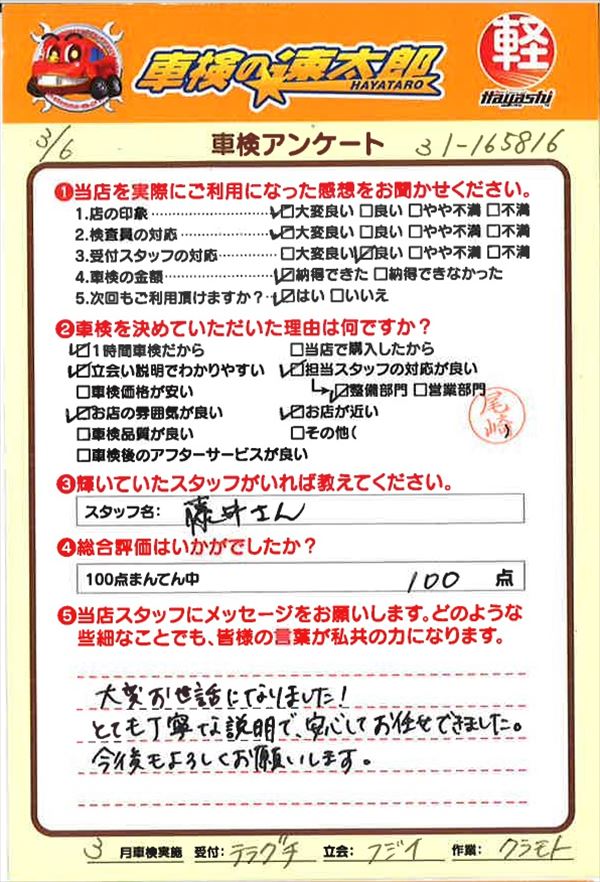 車検の速太郎
HAYATARO
軽
Hayashi
3/6
車検アンケート
31-165816
❶当店を実際にご利用になった感想をお聞かせください。
1.店の印象 ☑大変良い □良い □やや不満 □不満
2.検査員の対応 ☑大変良い □良い □やや不満 □不満
3.受付スタッフの対応 □大変良い ☑良い □やや不満 □不満
4.車検の金額 ☑納得できた □納得できなかった
5.次回もご利用頂けますか? ☑はい □いいえ
❷車検を決めていただいた理由は何ですか?
☑1時間車検だから □当店で購入したから
☑立会い説明でわかりやすい ☑担当スタッフの対応が良い
□車検価格が安い ☑整備部門 □営業部門
☑お店の雰囲気が良い ☑お店が近い
□車検品質が良い □その他( )
□車検後のアフターサービスが良い
尾崎
❸輝いていたスタッフがいれば教えてください。
スタッフ名: 藤井さん
❹総合評価はいかがでしたか?
100点まんてん中 100 点
❺当店スタッフにメッセージをお願いします。どのような
些細なことでも、皆様の言葉が私共の力になります。
大変お世話になりました!
とても丁寧な説明で、安心してお任せできました。
今後もよろしくお願いします。
3 月車検実施 受付: テラグチ 立会: フジイ 作業: クラモト